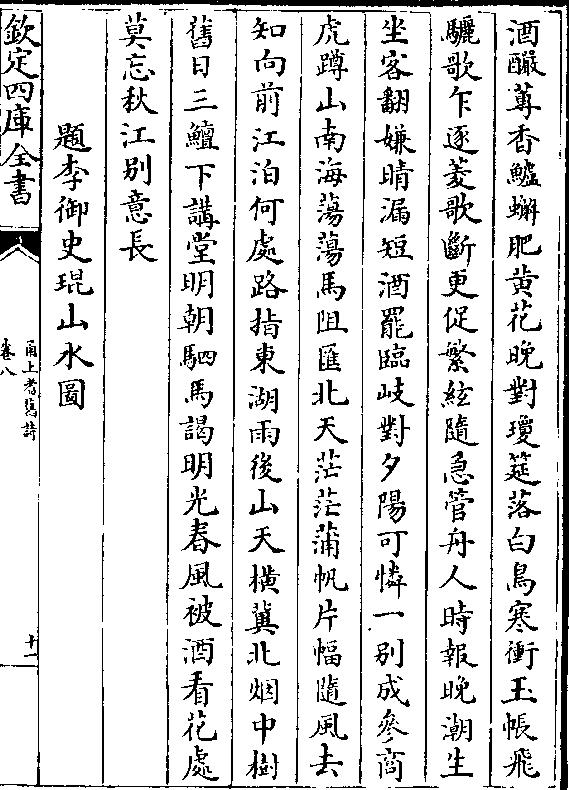 酒釅蓴香鱸蠏肥黄花晚對瓊筵落白鳥寒衝玉帳飛
驪歌乍逐菱歌斷更促繁絃隨急管舟人時報晚潮生
坐客翻嫌晴漏短酒罷臨岐對夕陽可憐一别成參商
虎蹲山南海蕩蕩馬阻匯北天茫茫蒲帆片幅隨風去
知向前江泊何處路指東湖雨後山天横冀北烟中樹
舊日三鱣下講堂明朝駟馬謁明光春風被酒看花處
莫忘秋江别意長
題李御史琨山水圖
欽定四庫全書
甬上耆舊詩
卷八
十一